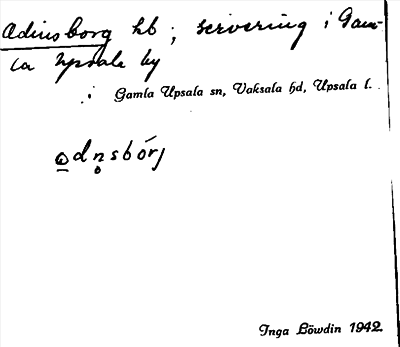 Adinsborg hb; servering i Gam-
la Upsala by
i Gamla Upsala sn, Vaksala hd, Upsala l.
ɷdn̥sbórj
Inga Löwdin 1942.